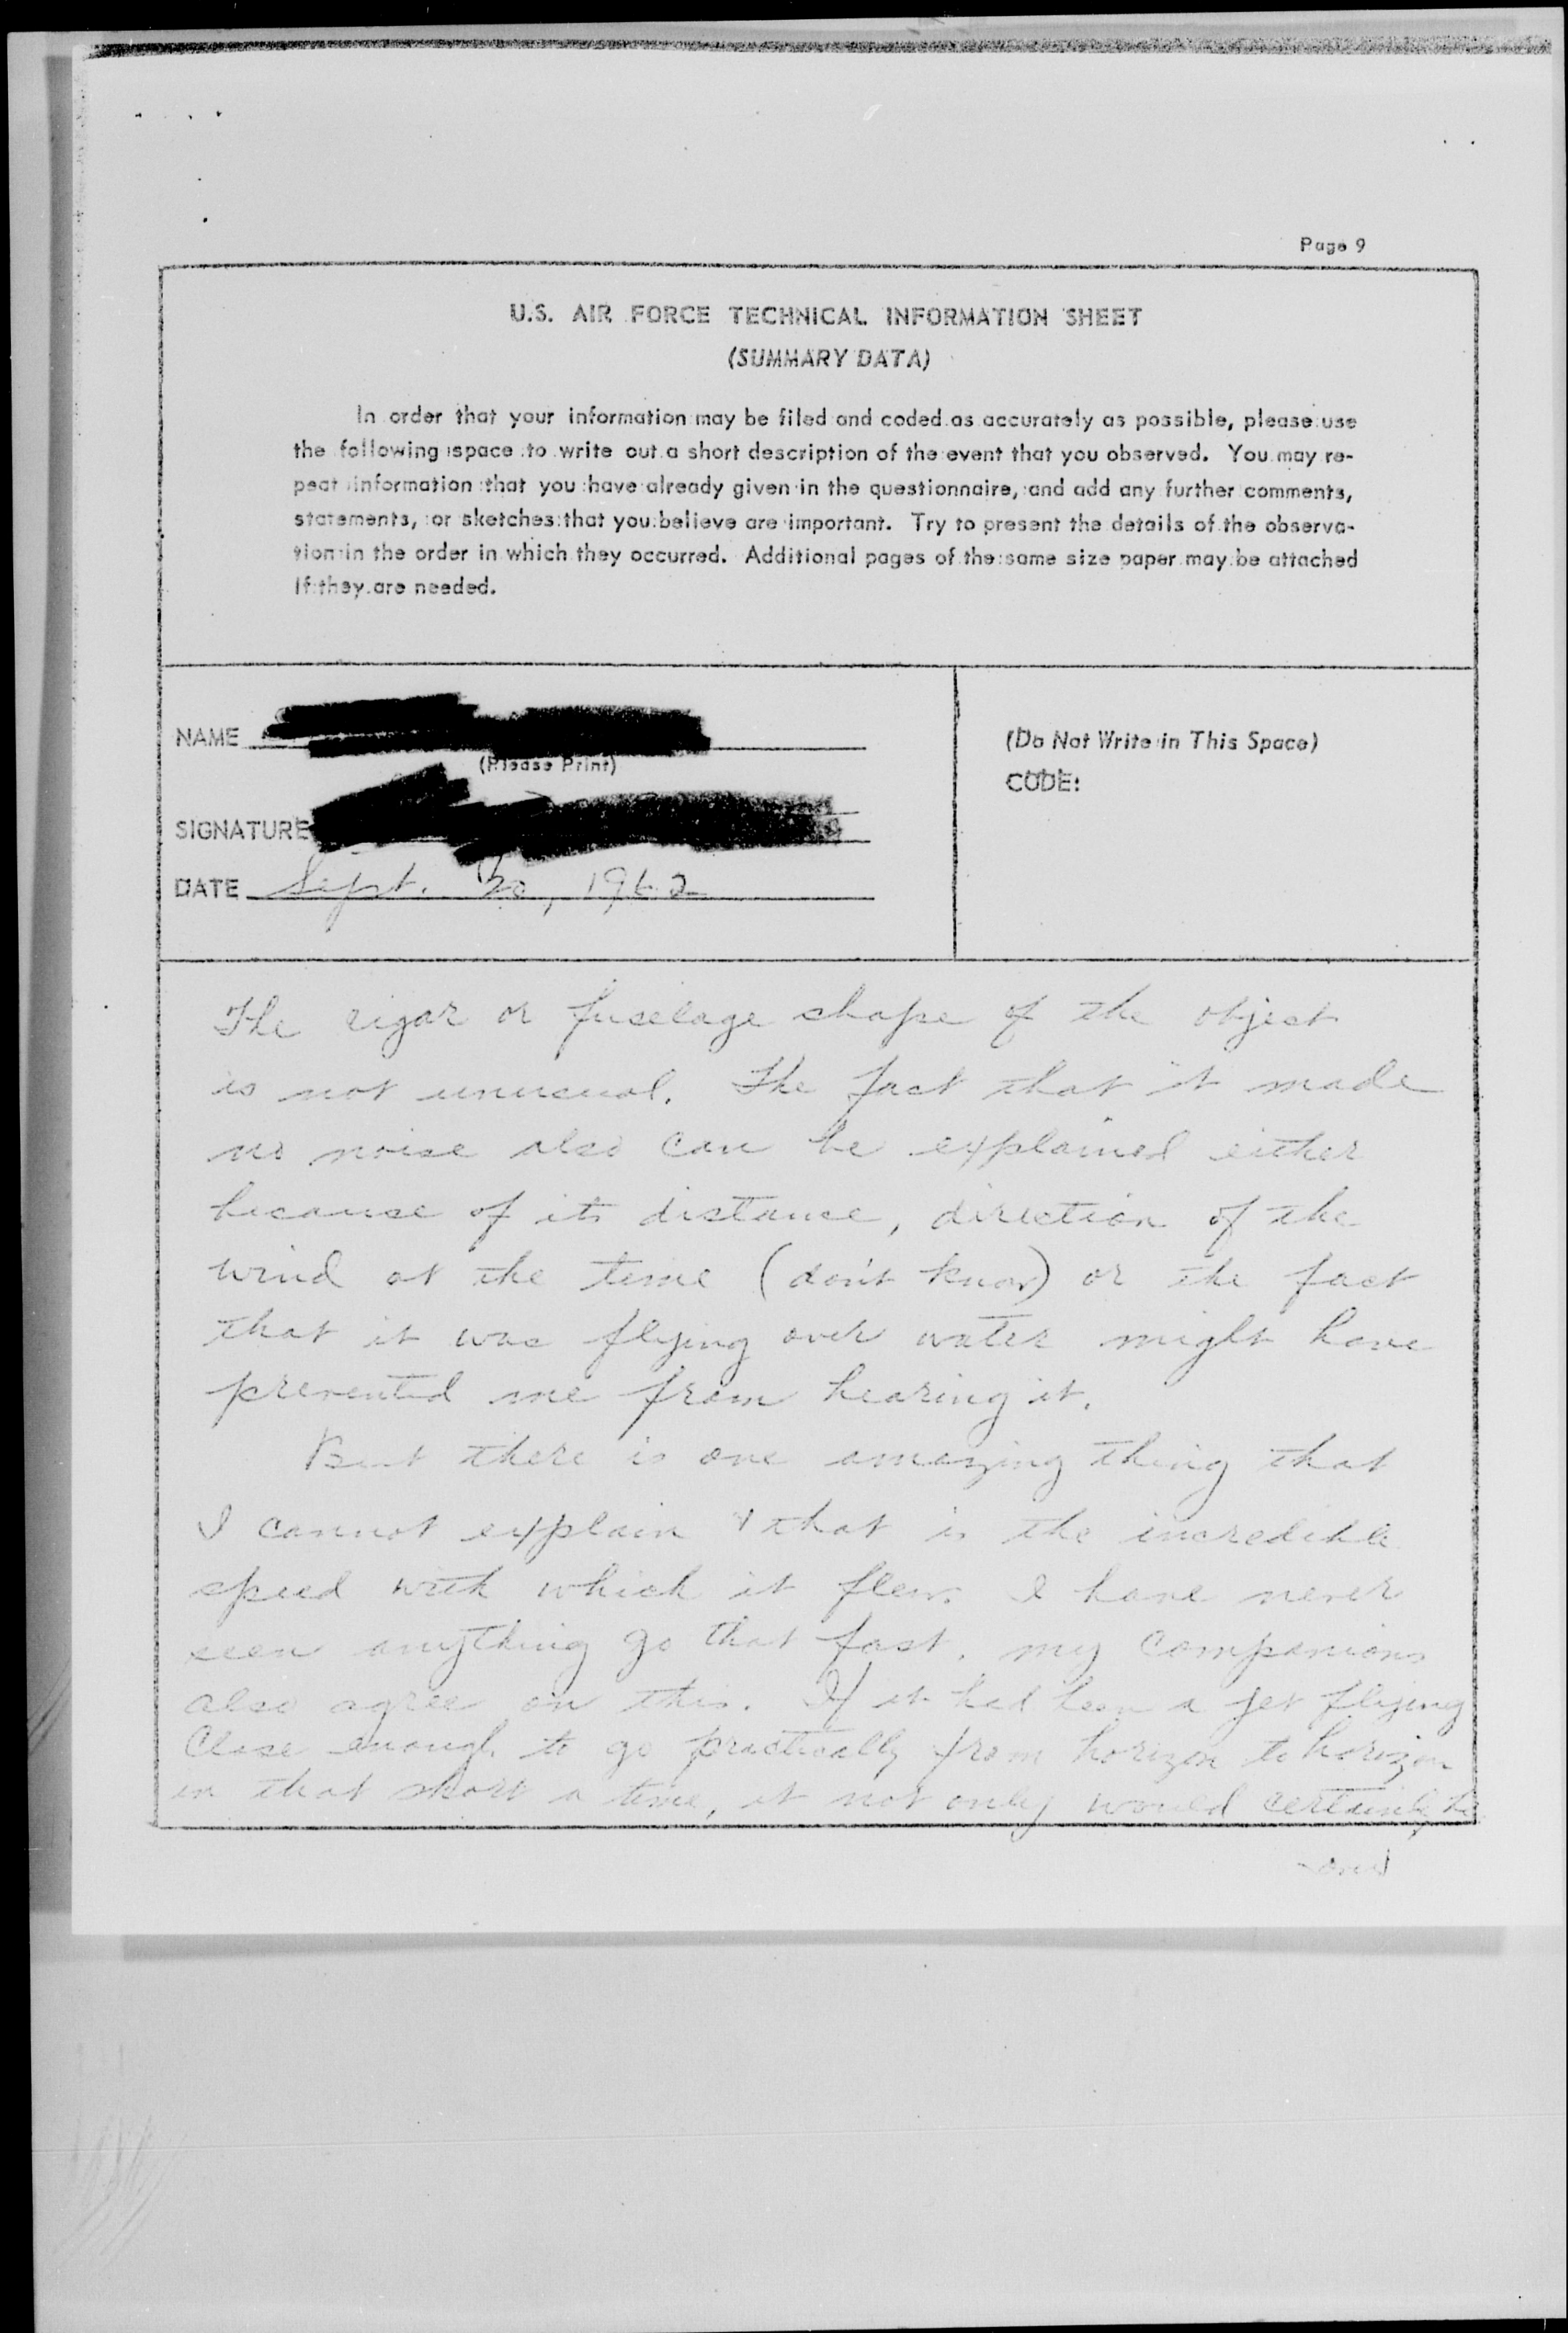 Page 9
U.S. AIR FORCE TECHNICAL INFORMATION SHEET
(SUMMARY DATA)
In order that your information may be filed and coded as accurately as possible, please use
the following space to write out a short description of the event that you observed. You may re-
peat information that you have already given in the questionnaire, and add any further comments,
statements, or sketches that you believe are important. Try to present the details of the observa-
tion in the order in which they occurred. Additional pages of the same size paper may be attached
if they are needed.
NAME
(Please Print)
SIGNATURE
DATE Sept. 20, 1962
(Do Not Write in This Space)
CODE:
The cigar or fuselage shape of the object
is not unusual. The fact that it made
no noise also can be explained either
because of its distance, direction of the
wind at the time (don't know) or the fact
that it was flying over water might have
prevented me from hearing it.
But there is one amazing thing that
I cannot explain & that is the incredible
speed with which it flew. I have never
seen anything go that fast. My companions
also agree on this. If it had been a jet flying
close enough to go practically from horizon to horizon
in that short a time, it not only would certainly be
over